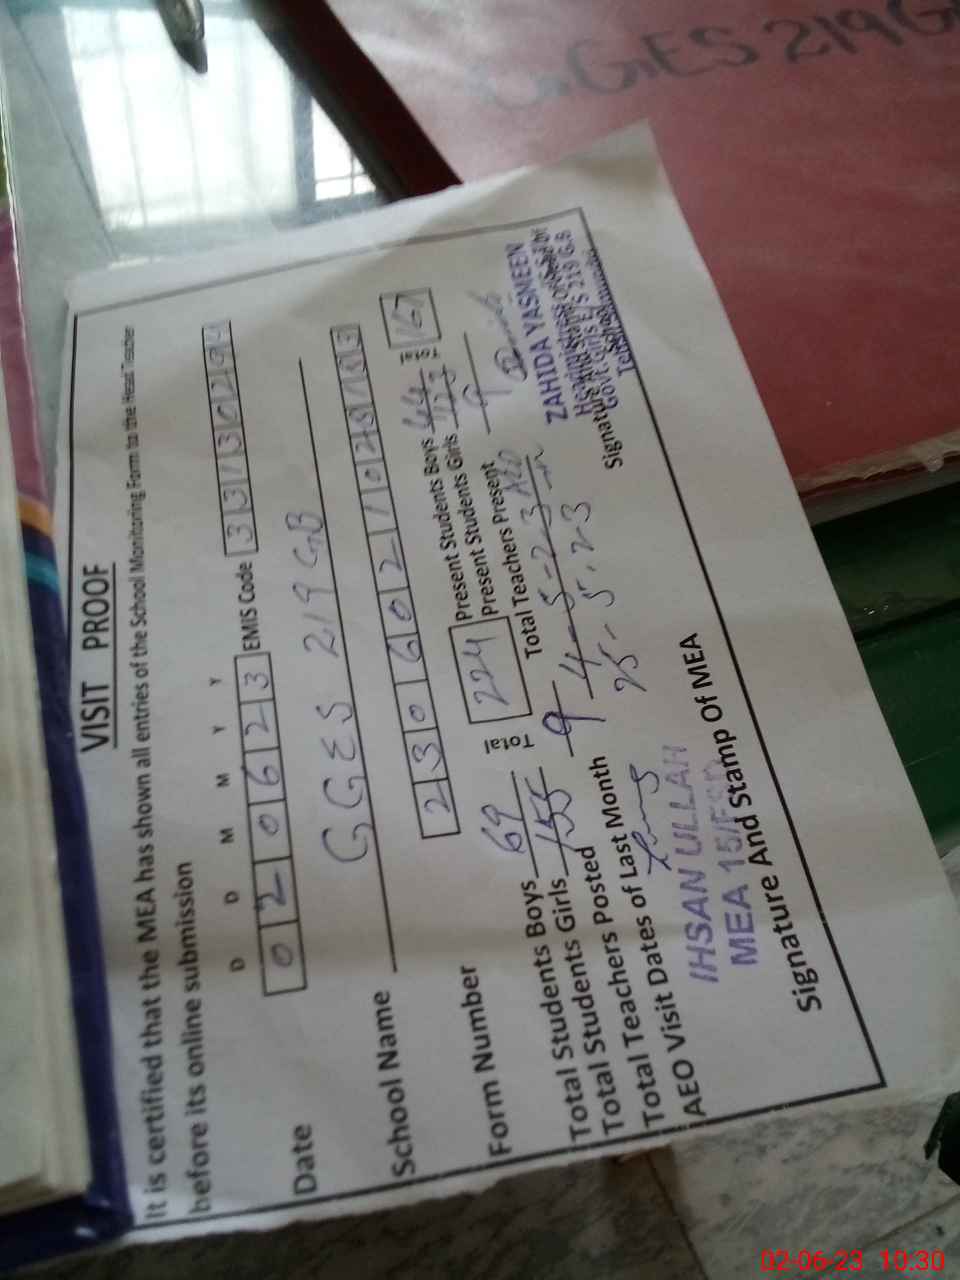 GGES 219 G
VISIT PROOF
It is certified that the MEA has shown all entries of the School Monitoring Form to the Head Teacher
before its online submission
D D M M Y Y
Date 020623 EMIS Code 33130294
School Name GGES 219 GB
Form Number 230602102
Total Students Boys 69 Total 224 Present Students Boys 44 167
Total Students Girls 155 Present Students Girls 123
Total Teachers Posted 9 Total Teachers Present 9
Total Visit Dates of Last Month 4-5-23
AEO Visit Dates of Last Month 25.5.23
IHSAN ULLAH
MEA 15/FSD
Signature And Stamp Of MEA
ZAHIDA YASMEEN
Headmistress
Govt. Girls E/S 219 G.B
Signature
02-06-23 10:30